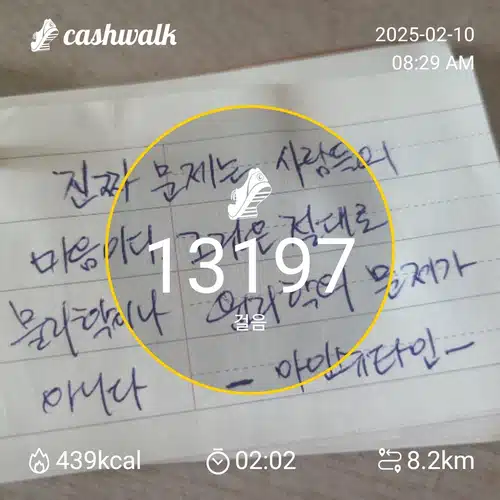 cashwalk
2025-02-10
08:29 AM
진짜 문제는 사람들의
마음이다 그것은 절대로
13197
걸음
물리학이나 윤리학의 문제가
아니다 - 아인슈타인 -
439kcal
02:02
8.2km